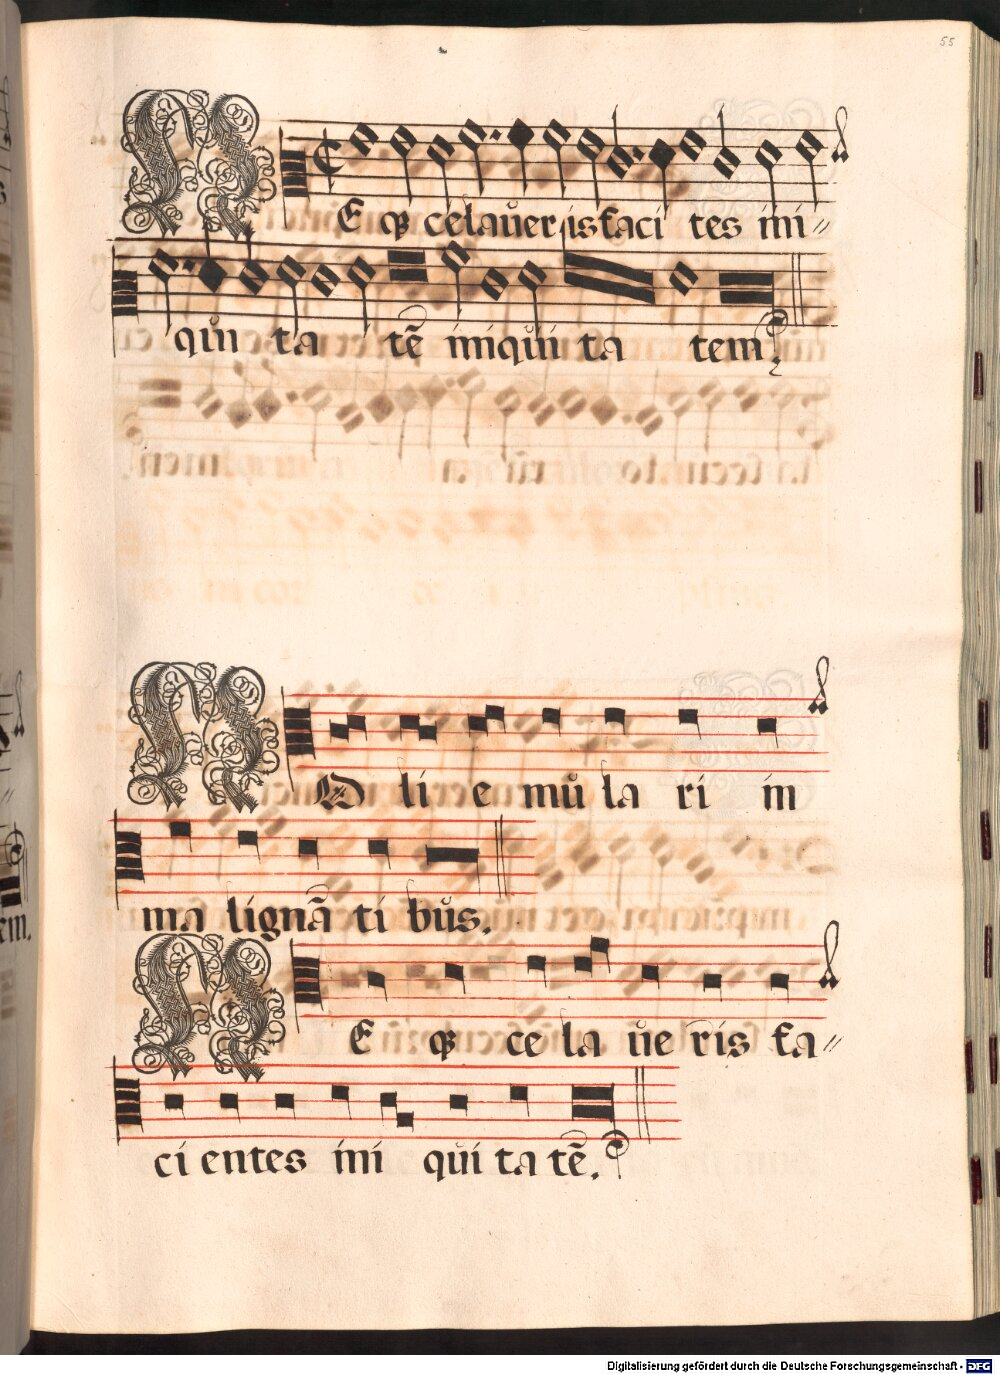 55
NE q celaueris faci tes ini⸗
qui ta tē iniqui ta tem.
NOli emula ri in
ma lignā ti bus.
NE q ce la ue ris fa⸗
ci entes ini qui ta tē.
Digitalisierung gefördert durch die Deutsche Forschungsgemeinschaft - DFG